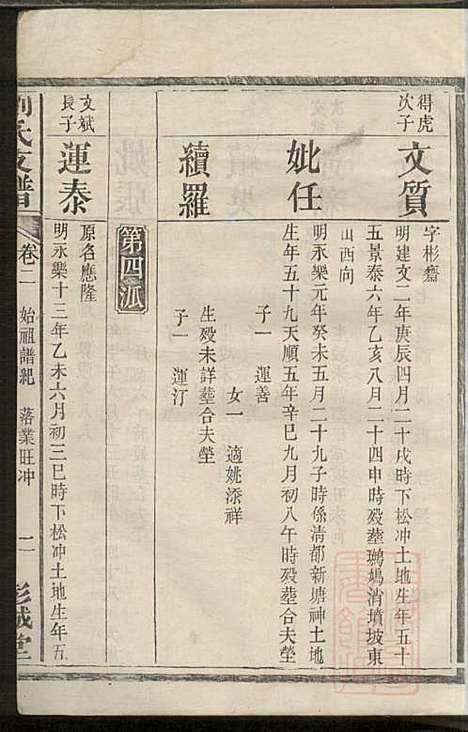 得虎
次子
文質
字彬齋
明建文二年庚辰四月二十戌時下松冲土地生年五十
五景泰六年乙亥八月二十四申時殁塟鵝鳩消墳坡東
山西向
妣任
明永樂元年癸未五月二十九子時係清都新塘神土地
生年五十九天順五年辛巳九月初八午時殁塟合夫塋
子一　運善
女一　適姚添祥
續羅
生殁未詳塟合夫塋
子一　運汀
第四派
文斌
長子
運泰
原名應隆
明永樂十三年乙未六月初三巳時下松冲土地生年五
劉氏支譜　卷二　始祖譜紀　落業旺冲　二　彭城堂